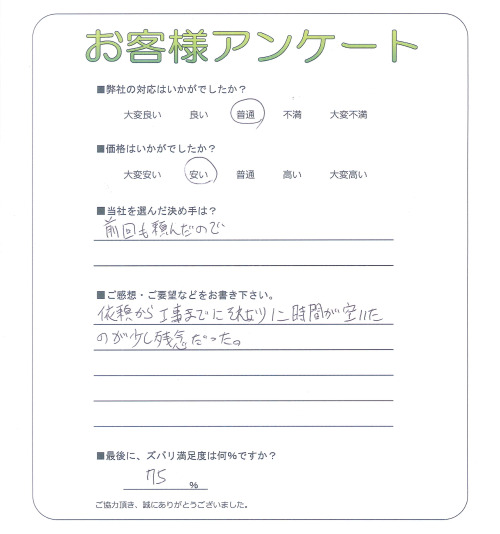 お客様アンケート
■弊社の対応はいかがでしたか?
大変良い 良い 普通 不満 大変不満
■価格はいかがでしたか?
大変安い 安い 普通 高い 大変高い
■当社を選んだ決め手は?
前回も頼んだので
■ご感想・ご要望などをお書き下さい。
依頼から工事までにそれなりに時間が空いた
のが少し残念だった。
■最後に、ズバリ満足度は何%ですか?
75 %
ご協力頂き、誠にありがとうございました。